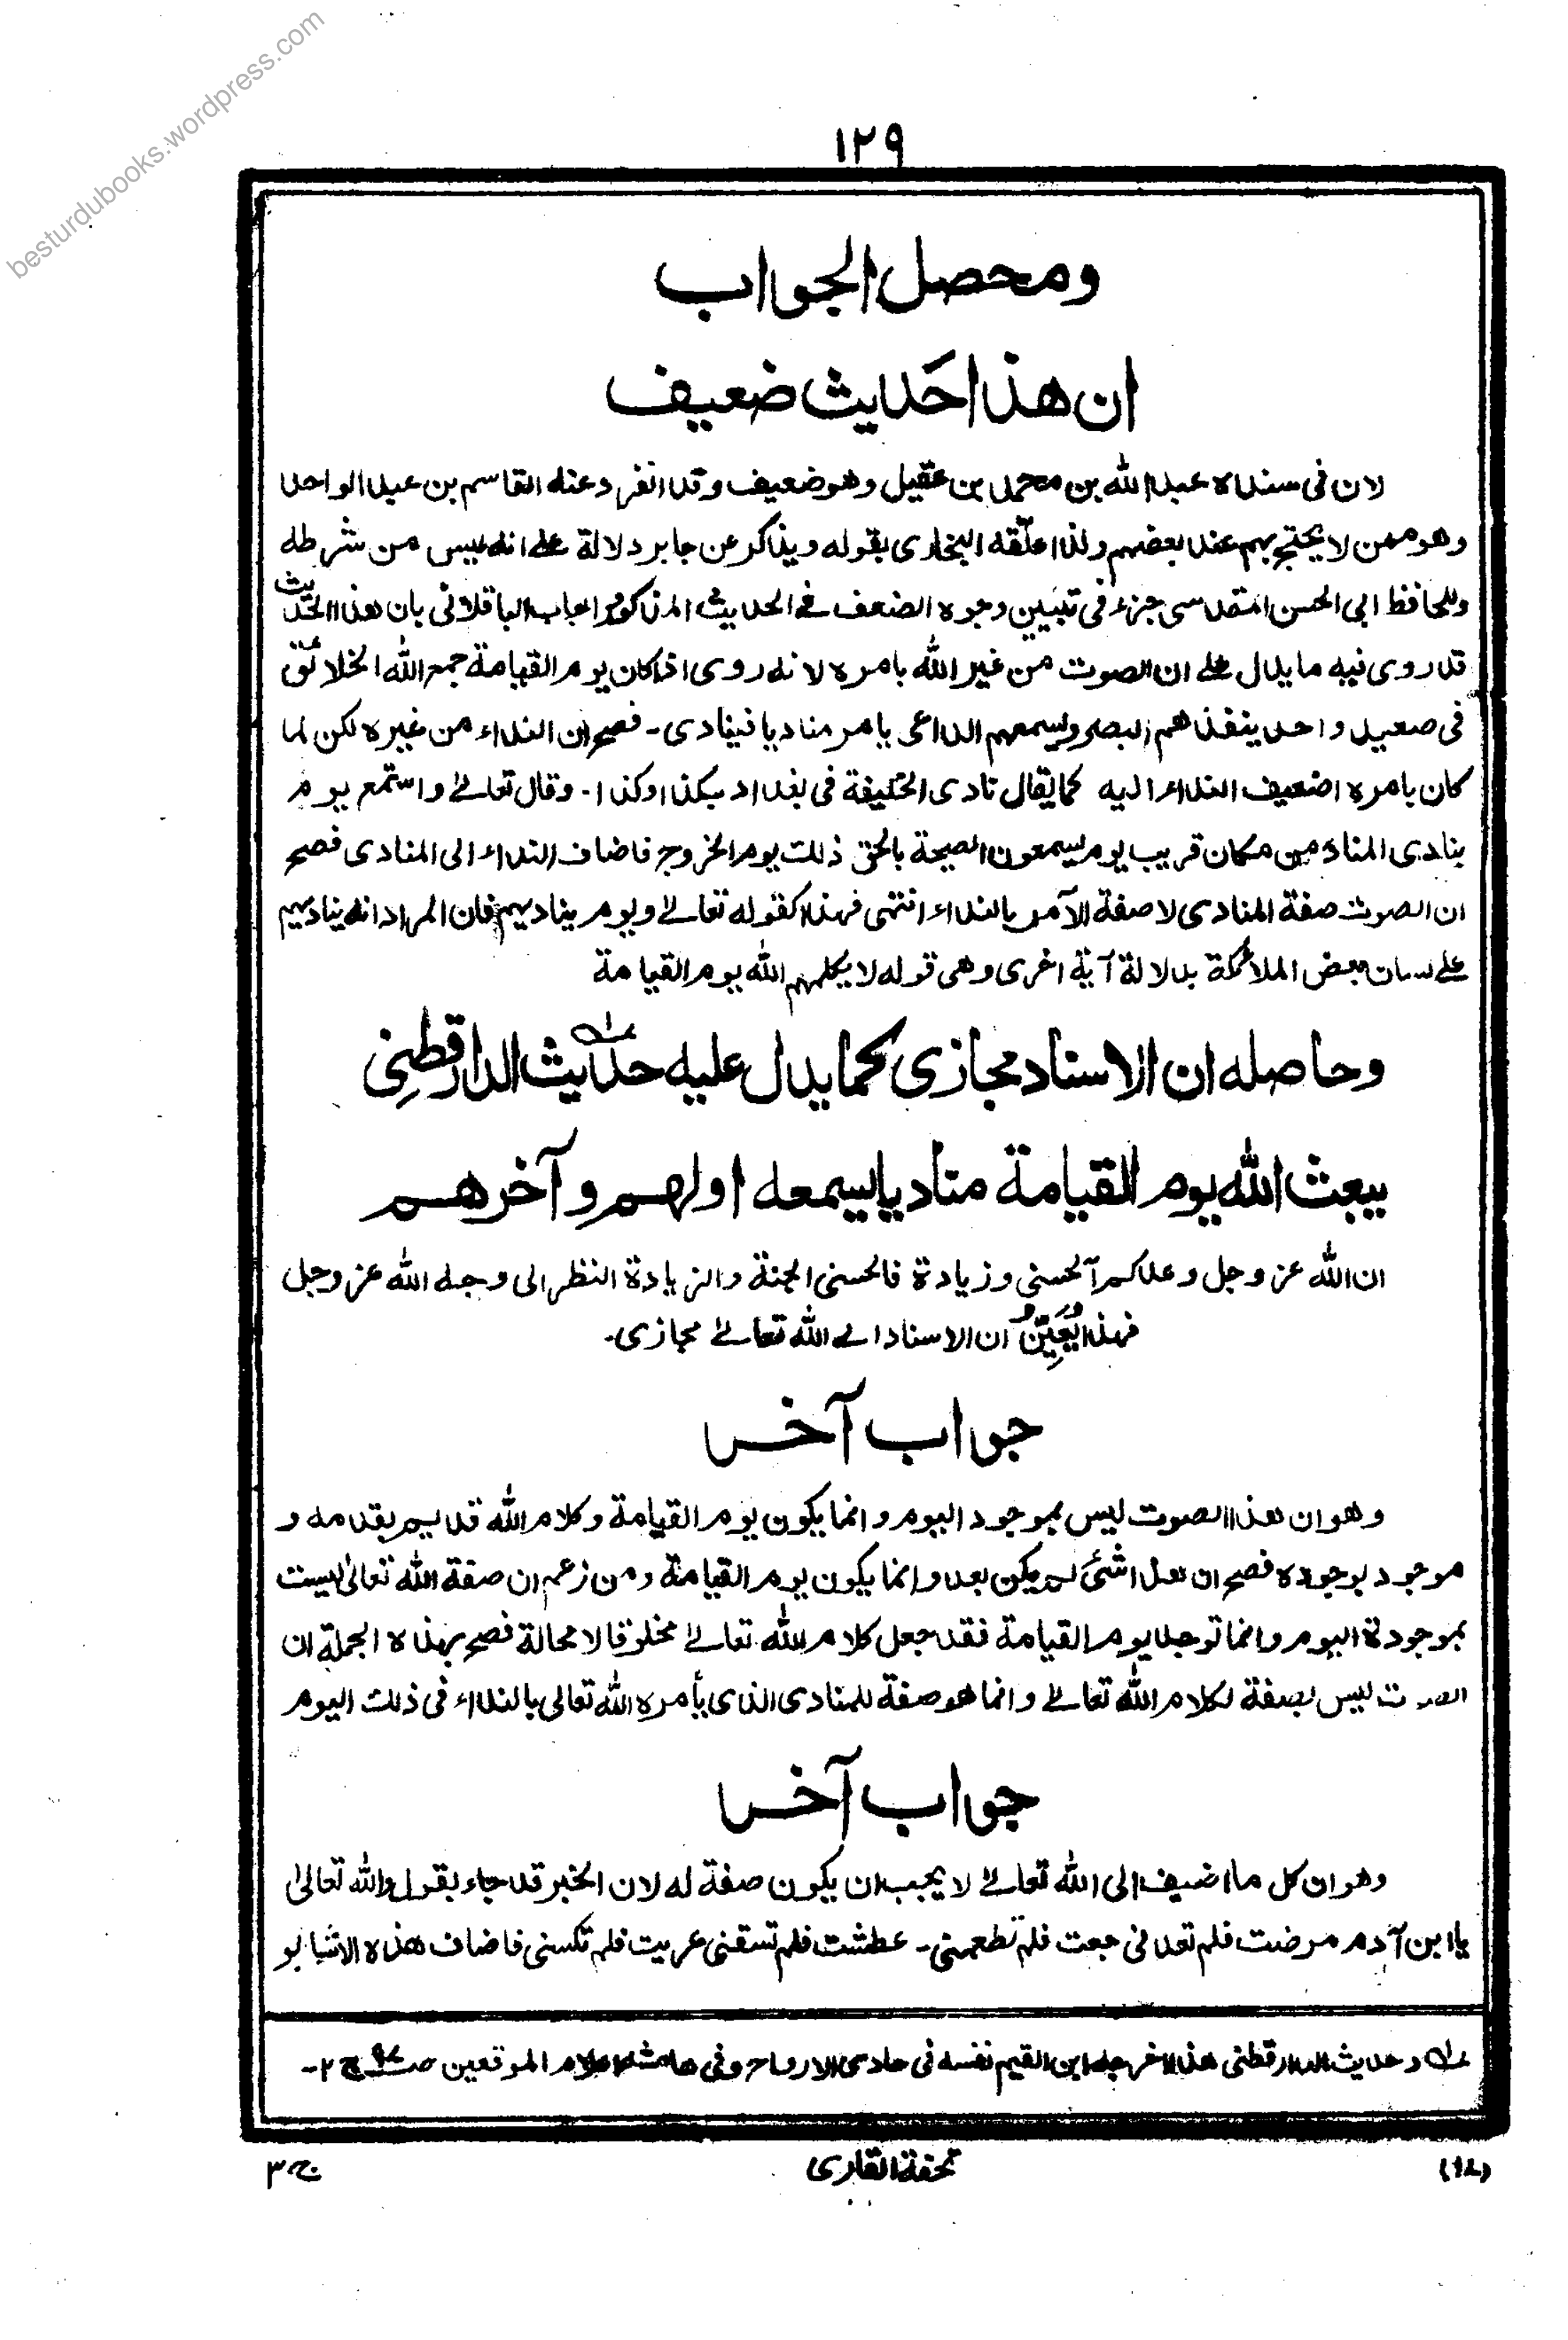 besturdubooks.wordpress.com
١٢٩
ومحصل الجواب
ان هذا حَديث ضعيف
لان فى سنده عبد الله بن محمد بن عقيل وهو ضعيف وقد انفرد عنه القاسم بن عبد الواحد
وهو ممن لا يحتج بهم عند بعضهم ولذا علّقه البخارى بقوله ويذكر عن جابر دلالة على انه ليس من شرطه
وللحافظ ابى الحسن المقدسى جزء فى تبيين وجوه الضعف فى الحديث المذكور واجاب الباقلانى بان هذا الحديث
قد روى فيه ما يدل على ان الصوت من غير الله بامره لانه روى اذا كان يوم القيامة جمع الله الخلائق
فى صعيد واحد ينفذهم البصر ويسمعهم الداعى يامر مناديا فينادى ـ فصح ان النداء من غيره لكن لما
كان بامره اضيف النداء اليه كما يقال نادى الخليفة فى بغداد بكذا وكذا ـ وقال تعالى واستمع يوم
ينادى المناد من مكان قريب يوم يسمعون الصيحة بالحق ذلك يوم الخروج فاضاف النداء الى المنادى فصح
ان الصوت صفة المنادى لا صفة الآمر بالنداء انتهى فهذا كقوله تعالى ويوم يناديهم فان المراد انه يناديهم
على لسان بعض الملائكة بدلالة آية اخرى وهى قوله لا يكلمهم الله يوم القيامة
وحاصله ان الاسناد مجازى كما يدل عليه حديث الدارقطنِى
يبعث الله يوم القيامة مناديا يسمعه اولهم وآخرهم
ان الله عز وجل وعدكم الحسنى وزيادة فالحسنى الجنة والزيادة النظر الى وجه الله عز وجل
فهذا يُعَيِّنُ ان الاسناد الى الله تعالى مجازى ـ
جواب آخر
وهو ان هذا الصوت ليس بموجود اليوم وانما يكون يوم القيامة وكلام الله قديم بقدمه و
موجود بوجوده فصح ان هذا شئ لم يكن بعد وانما يكون يوم القيامة ومن زعم ان صفة الله تعالى ليست
بموجودة اليوم وانما توجد يوم القيامة فقد جعل كلام الله تعالى مخلوقا لا محالة فصح بهذه الجملة ان
الصوت ليس بصفة لكلام الله تعالى وانما هو صفة للمنادى الذى يأمره الله تعالى بالنداء فى ذلك اليوم
جواب آخر
وهو ان كل ما اضيف الى الله تعالى لا يجب ان يكون صفة له لان الخبر قد جاء بقول الله تعالى
يا ابن آدم مرضت فلم تعدنى جعت فلم تطعمنى ـ عطشت فلم تسقنى عريت فلم تكسنى فاضاف هذه الاشياء
؎١ وحديث الدارقطنى هذا اخرجه ابن القيم نفسه فى حادى الارواح وفى هامشه اعلام الموقعين صـ ج ٢ ـ
تحفة القارى
ج ٣